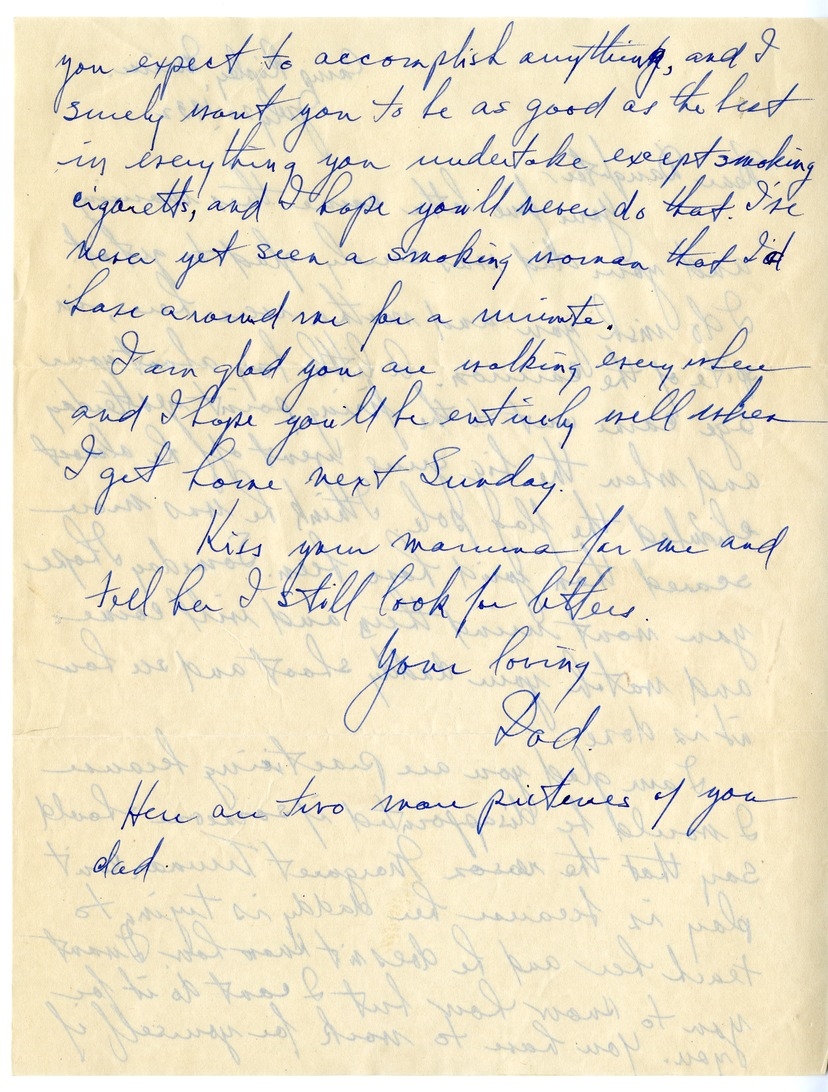 you expect to accomplish anything, and I
surely want you to be as good as the best
in everything you undertake except smoking
cigaretts, and I hope you'll never do that. I've
never yet seen a smoking woman that I'd
have around me for a minute.
I am glad you are walking everywhere
and I hope you'll be entirely well when
I get home next Sunday.
Kiss your mamma for me and
tell her I still look for letters.
Your loving
Dad.
Here are two more pictures of you
dad.